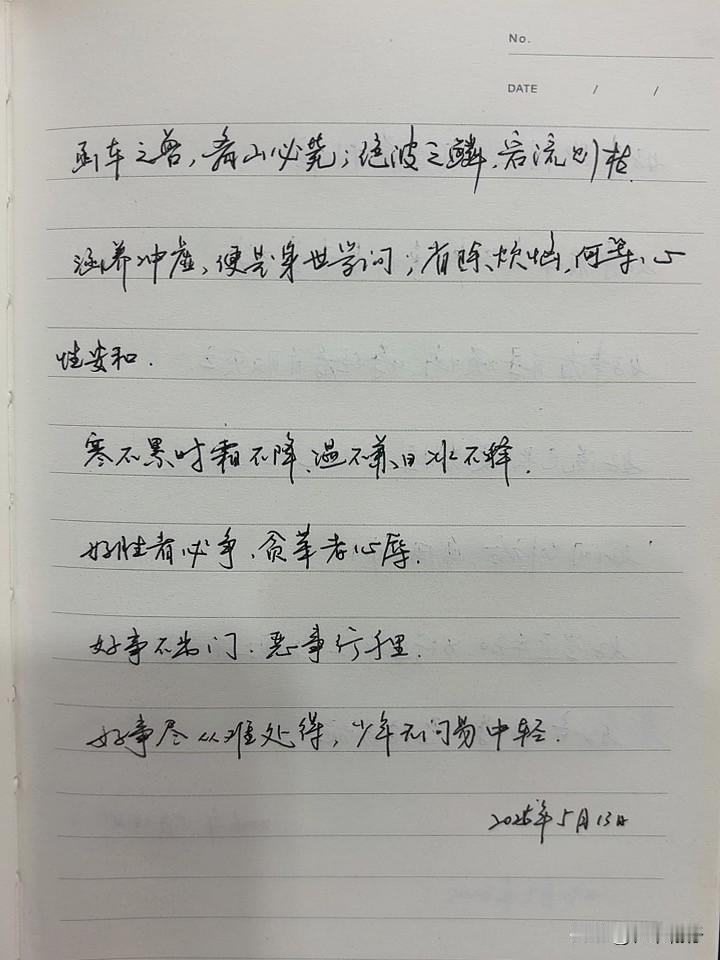 No.
DATE / /
函车之兽，离山必毙；绝波之鳞，宕流则枯.
涵养冲虚，便是身世学问；省除烦恼，何等心
性安和.
寒不累时霜不降，温不兼日冰不释.
好胜者必争，贪荣者必辱.
好事不出门，恶事行千里.
好事尽从难处得，少年不向易中轻.
2025年5月13日